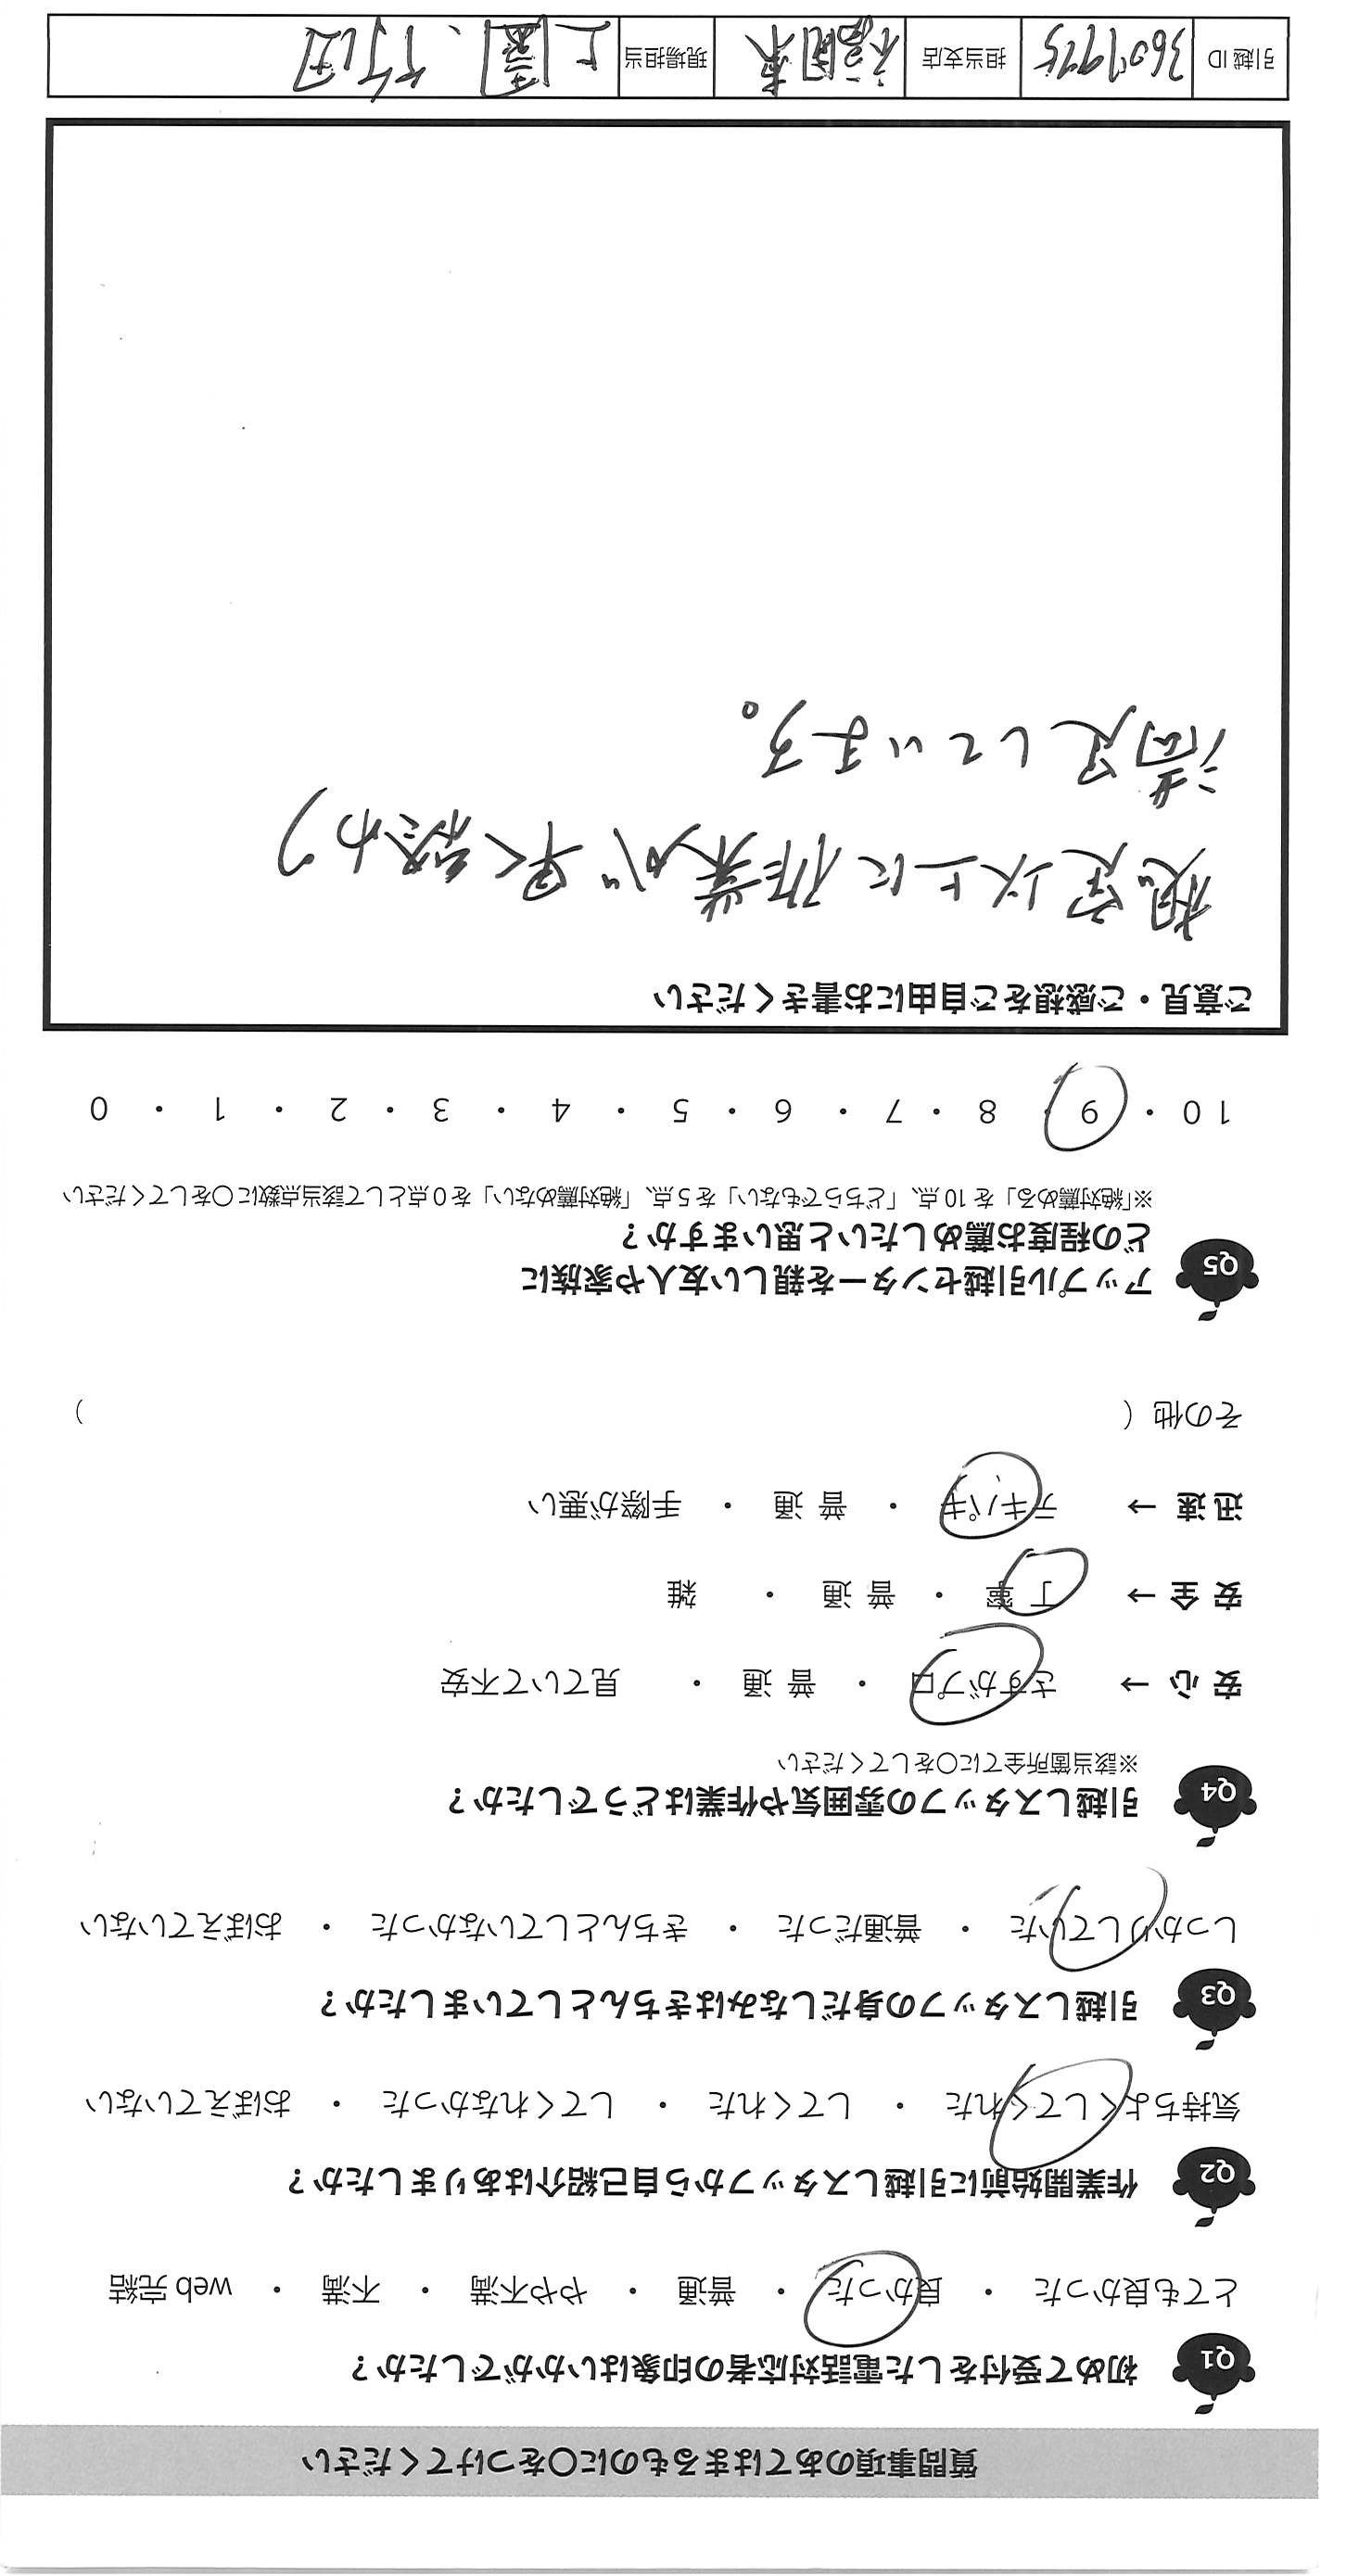 質問事項のあてはまるものに○をつけてください
Q1 初めて受付をした電話対応者の印象はいかがでしたか？
とても良かった ・ 良かった ・ 普通 ・ やや不満 ・ 不満 ・ web 完結
Q2 作業開始前に引越しスタッフから自己紹介はありましたか？
気持ちよくしてくれた ・ してくれた ・ してくれなかった ・ おぼえていない
Q3 引越しスタッフの身だしなみはきちんとしていましたか？
しっかりしていた ・ 普通だった ・ きちんとしていなかった ・ おぼえていない
Q4 引越しスタッフの雰囲気や作業はどうでしたか？
※該当箇所全てに○をしてください
安心 → さすがプロ ・ 普通 ・ 見ていて不安
安全 → 丁寧 ・ 普通 ・ 雑
迅速 → テキパキ ・ 普通 ・ 手際が悪い
その他（ ）
Q5 アップル引越センターを親しい友人や家族に
どの程度お薦めしたいと思いますか？
※「絶対薦める」を 10 点、「どちらでもない」を 5 点、「絶対薦めない」を 0 点として該当点数に○をしてください
10 ・ 9 ・ 8 ・ 7 ・ 6 ・ 5 ・ 4 ・ 3 ・ 2 ・ 1 ・ 0
ご意見・ご感想をご自由にお書きください
想定以上に作業が早く終わり
満足しています。
引越 ID 3607975 担当支店 福岡東 現場担当 上園、竹田